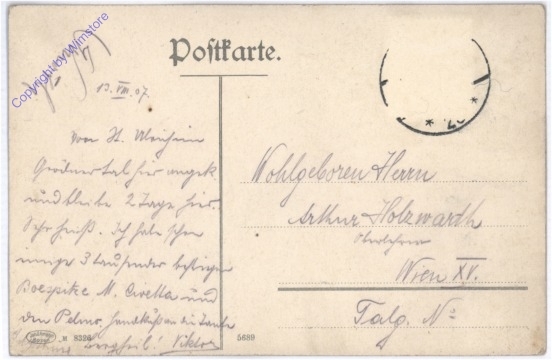 Copyright by Wimstore
Postkarte.
13. VIII. 07.
von St. Ulrich im
Grödnertal hier angek.
und bleibe 2 Tage hier.
Sehr heiß. Ich habe schon
einige 3 tausender bestiegen
Boespitze M. Civetta und
den Pelmo. Handkuß an die Tante
Bergheil! Viktor
Wohlgeboren Herrn
Arthur Holzwarth
Oberlehrer
Wien XV.
Talg. No
M 8326
5689